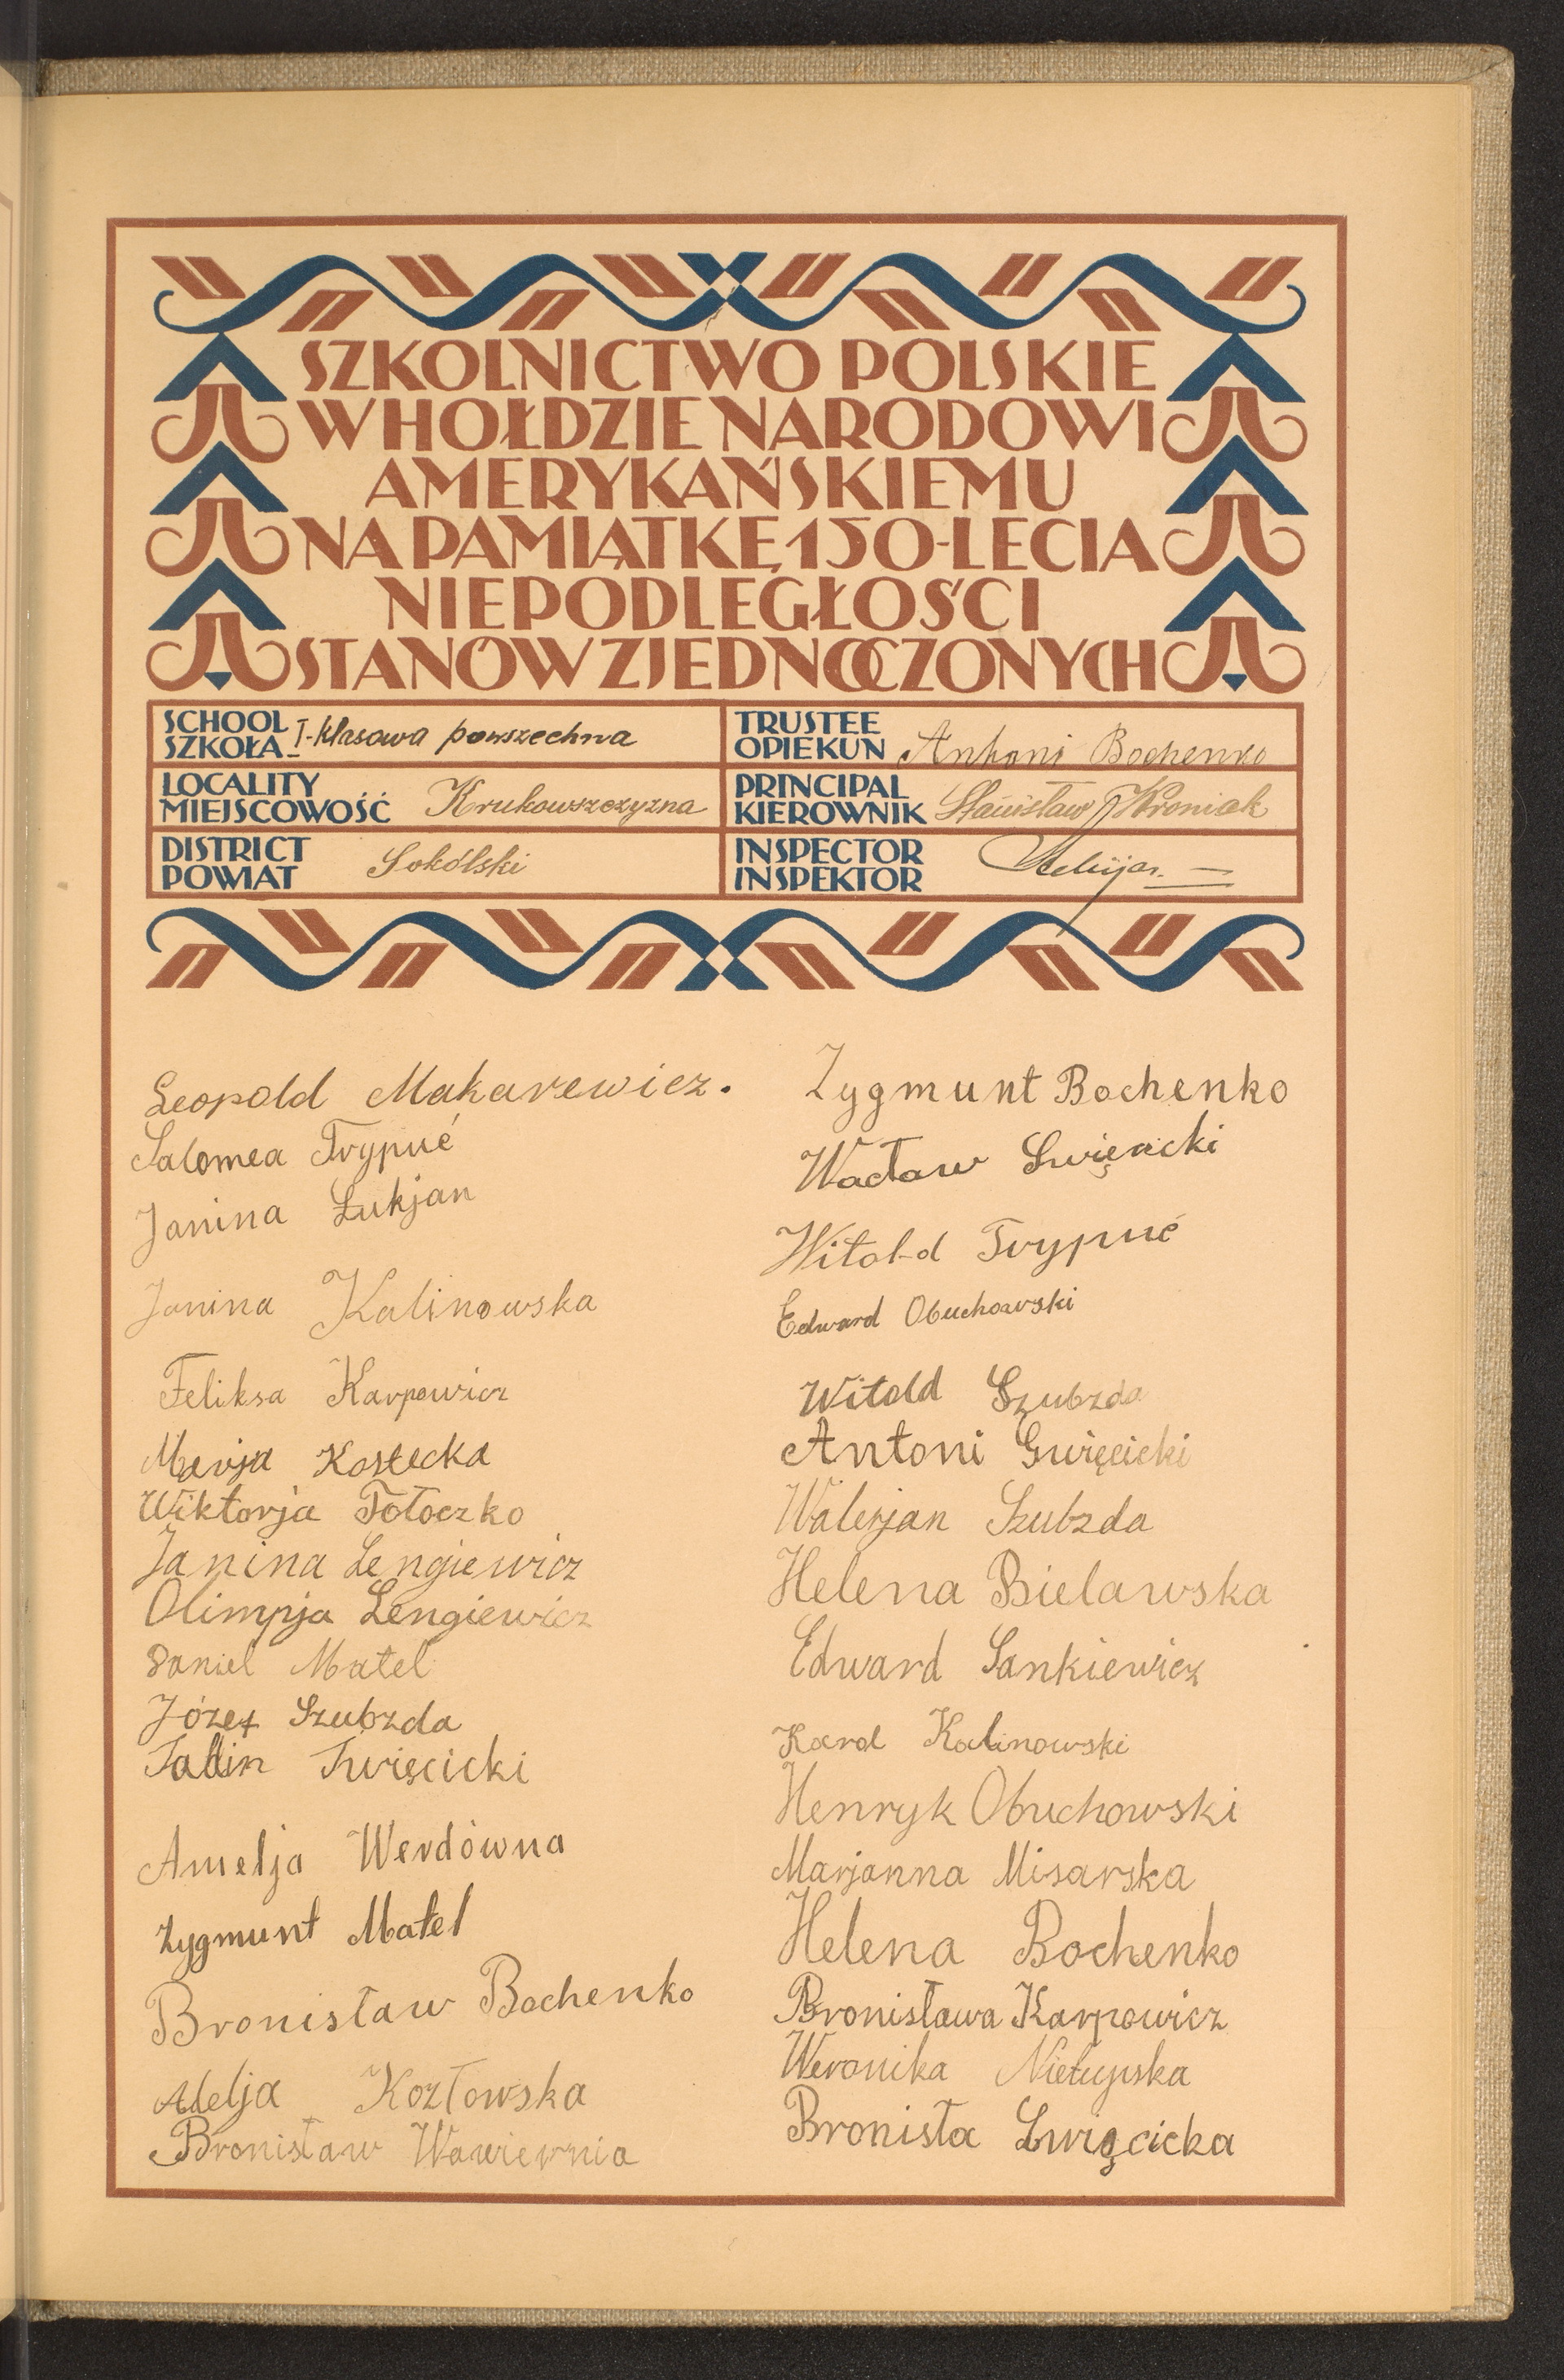 SZKOLNICTWO POLSKIE
W HOŁDZIE NARODOWI
AMERYKAŃSKIEMU
NA PAMIĄTKĘ 150-LECIA
NIEPODLEGŁOŚCI
STANÓW ZJEDNOCZONYCH
SCHOOL
SZKOŁA I-klasowa powszechna
LOCALITY
MIEJSCOWOŚĆ Krukowszczyzna
DISTRICT
POWIAT Sokólski
TRUSTEE
OPIEKUN Antoni Bochenko
PRINCIPAL
KIEROWNIK Stanisław Kroniak
INSPECTOR
INSPEKTOR
Leopold Makarewicz.
Salomea Trypuć
Janina Łukjan
Janina Kalinowska
Feliksa Karpowicz
Marja Kostecka
Wiktorja Tołoczko
Janina Lengiewicz
Olimpja Lengiewicz
Daniel Matel
Józef Szubzda
Święcicki
Amelja Werdówna
Zygmunt Matel
Bronisław Bochenko
Adelja Kozłowska
Bronisław Wawiernia
Zygmunt Bochenko
Wacław
Witold Trypuć
Edward Obuchowski
Witold Szubzda
Antoni Święcicki
Walerjan Szubzda
Helena Bielawska
Edward Sankiewicz
Karol Kalinowski
Henryk Obuchowski
Marjanna Misarska
Helena Bochenko
Bronisława Karpowicz
Weronika Nietupska
Bronisła Święcicka